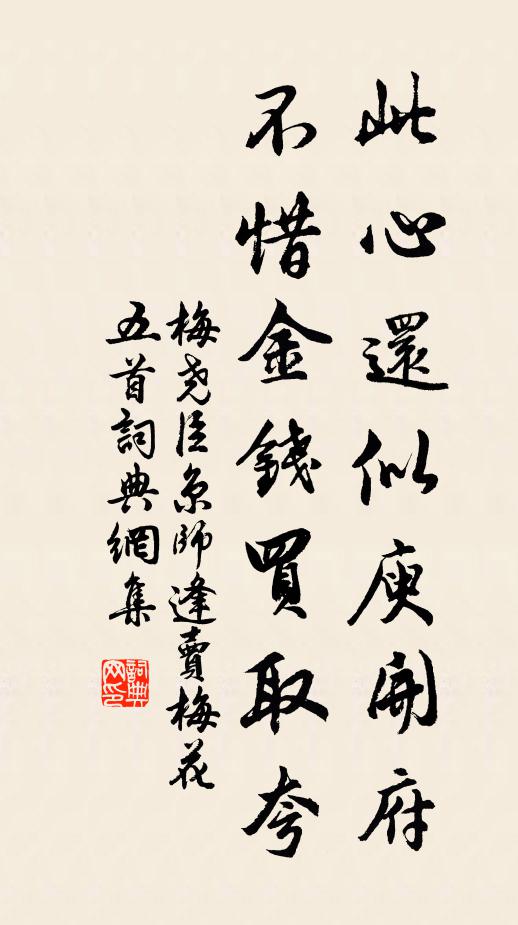 此心還似庾開府
不惜金錢買取夸
梅堯臣京師逢賣梅花
五首詞典網集
詞典网印